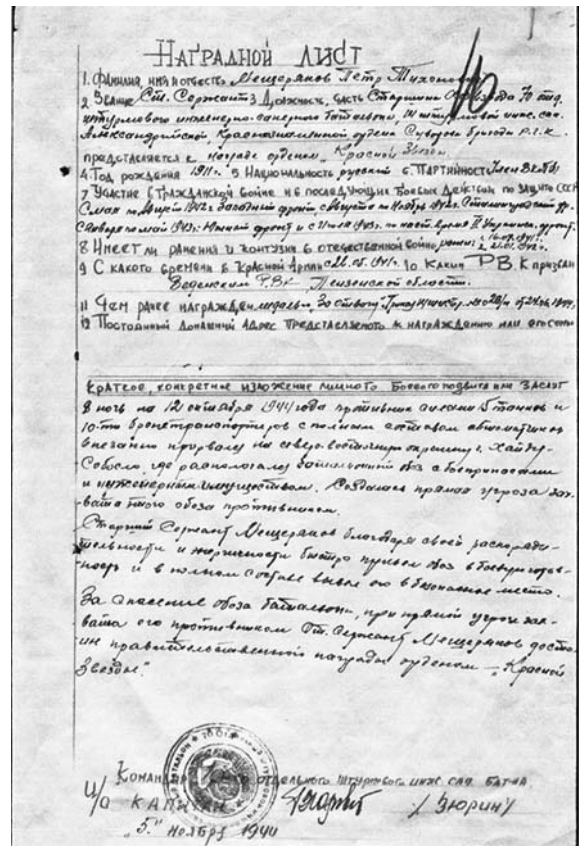 НАГРАДНОЙ ЛИСТ
1. ФАМИЛИЯ, ИМЯ И ОТЧЕСТВО Мещеряков Петр Тихонович
2 Звание Ст. Сержант 3 Должность, часть Старшина 70 отд.
штурмового инженерно-саперного батальона, штурмовой инж. сап.
Александрийской, Краснознаменной ордена Суворова бригады Р.Г.К.
представляется к награде орденом „Красной Звезды"
4. Год рождения 1911 г. 5. Национальность русский 6. Партийность Член ВКП(б)
7 Участие в гражданской войне и в последующих боевых действиях по защите СССР
С мая по август 1942 г. Западный фронт, с августа по ноябрь 1942 г. Сталинградский фр.
по май 1943 г. Южный фронт и с июля 1943 г. по наст. время II Украинск. фронт.
8 Имеет ли ранения и контузии в отечественной войне
9 С какого времени в Красной Армии 1941 г. 10. Каким РВК призван
РВК Пензенской области.
11 Чем ранее награжден медалью „За отвагу"
12 Постоянный домашний адрес представляемого к награждению или его семьи
КРАТКОЕ, КОНКРЕТНОЕ ИЗЛОЖЕНИЕ ЛИЧНОГО БОЕВОГО ПОДВИГА ИЛИ ЗАСЛУГ
В ночь на 12 октября 1944 года противник силами 15 танков и
10-ти бронетранспортеров с полным составом автоматчиков
внезапно прорвался на северо-восточную окраину г. Хайду-
Собосло, где располагался батальонный обоз с боеприпасами
и инженерным имуществом. Создалась прямая угроза зах-
вата этого обоза противником.
Старший Сержант Мещеряков благодаря своей распоряди-
тельности и энергичности быстро привел обоз в боевую готов-
ность и в полном составе вывел его в безопасное место.
За спасение обоза батальона, при прямой угрозе зах-
вата его противником Ст. Сержант Мещеряков досто-
ин правительственной награды орденом – „Красной
Звезды".
КОМАНДИР отдельного штурмового инж. сап. бат-на.
и/о КАПИТАН / Зюрин /
„5." Ноября 1944